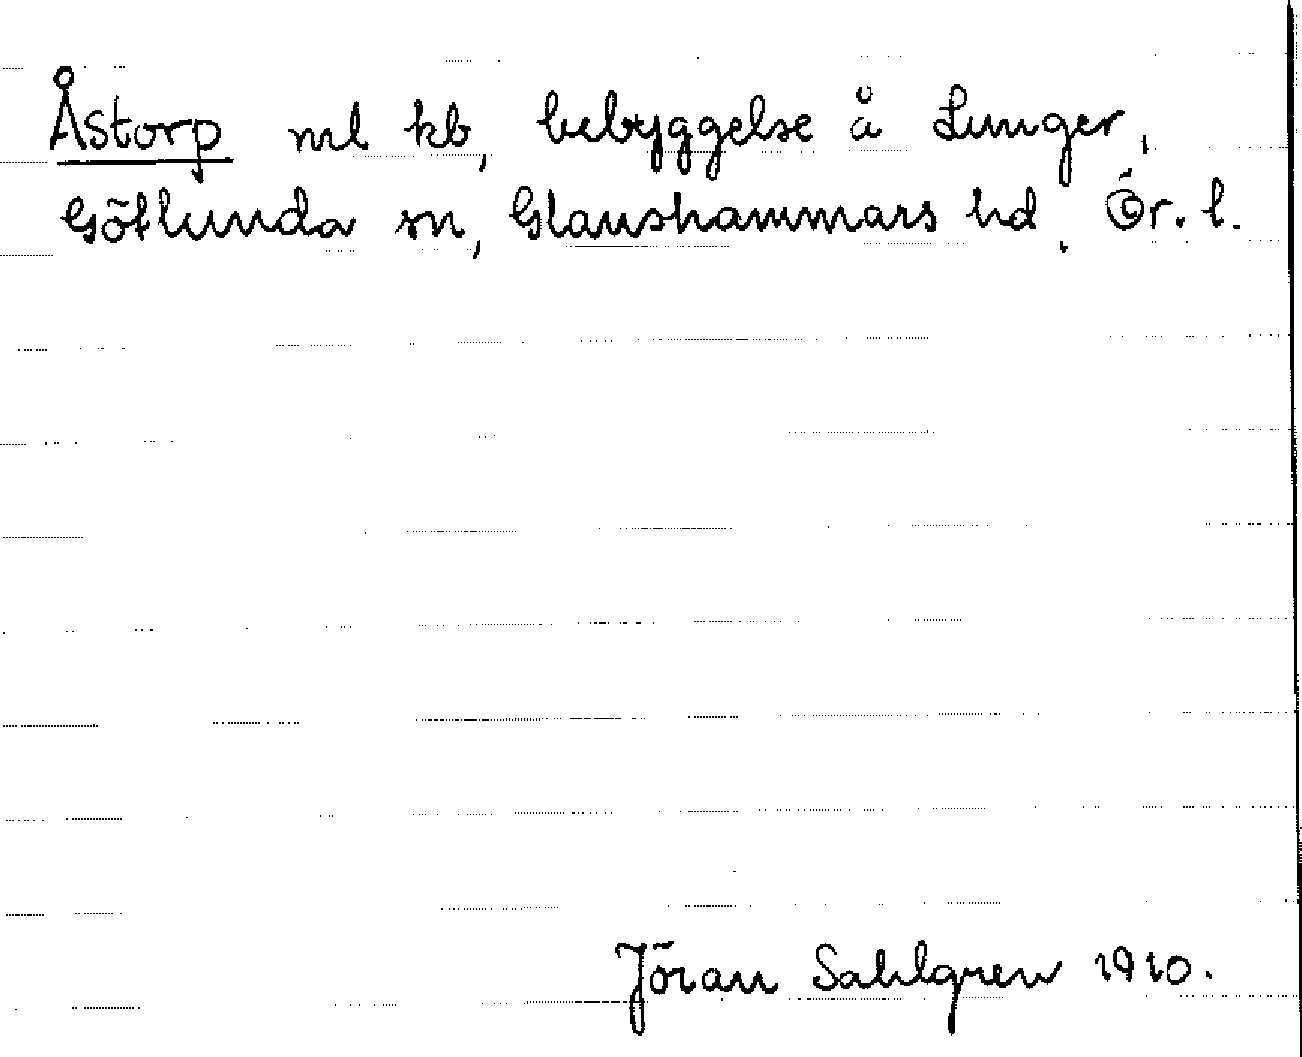 Åstorp ml kb, bebyggelse å Lunger,
Götlunda sn, Glanshammars hd, Ör. l.
Jöran Sahlgren 1910.